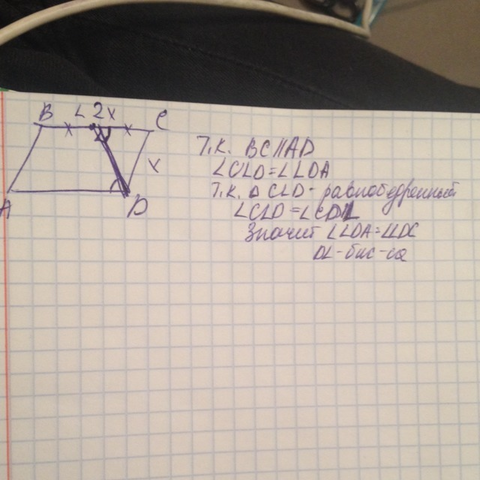 B L 2x C
x x
x
A D
Т.к. BC ∥ AD
∠CLD = ∠LDA
Т.к. △CLD - равнобедренный
∠CLD = ∠CDL
Значит ∠LDA = ∠LDC
DL - бис-са